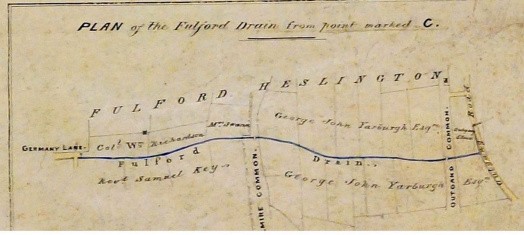 PLAN of the Fulford Drain from point marked C.
FULFORD HESLINGTON
GERMANY LANE.
Colˡ Wᵐ Richardson
George John Yarburgh Esqʳ
Fulford Drain.
Revᵈ Samuel Key
George John Yarburgh Esqʳ
MIRE COMMON.
OUTGANG COMMON.